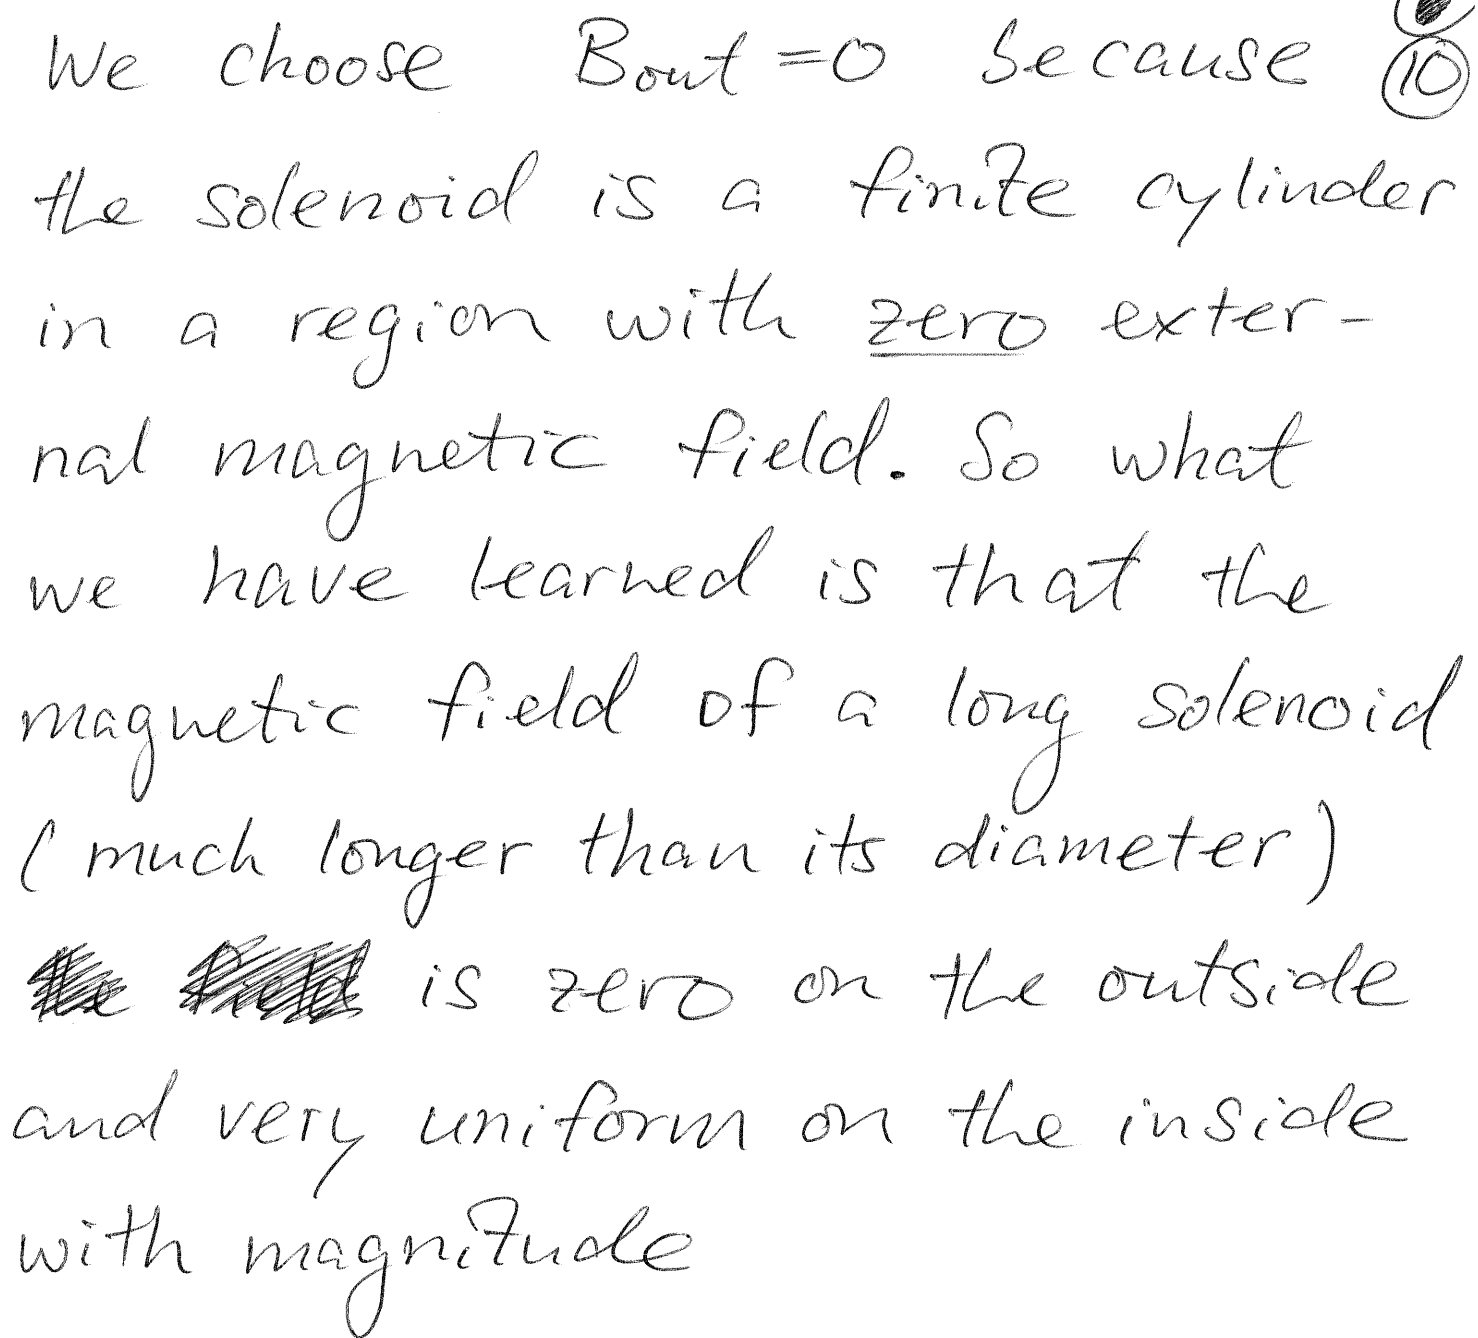 We choose Bout = 0 because 10
the solenoid is a finite cylinder
in a region with zero exter-
nal magnetic field. So what
we have learned is that the
magnetic field of a long solenoid
(much longer than its diameter)
is zero on the outside
and very uniform on the inside
with magnitude